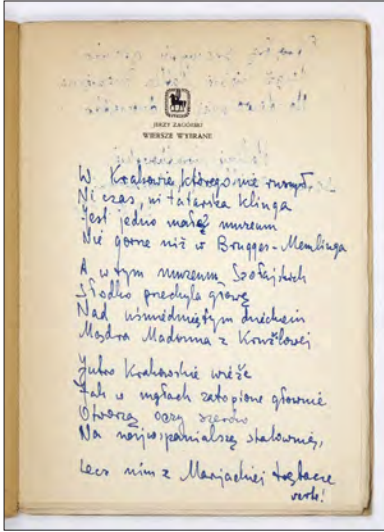 JERZY ZAGÓRSKI
WIERSZE WYBRANE
W Krakowie, którego nie ruszył,
Ni czas, ni tatarska klinga
Jest jedno małe muzeum
Nie gorsze niż w Brugges - Memlinga
A w tym muzeum Szołajskich
Słodko przechyla głowę
Nad uśmiechniętym dzieckiem
Mądra Madonna z Krużlowej
Jutro Krakowskie wieże
Jak w mgłach zatopione głownie
Otworzą oczy szeroko
Na najwspanialszą stalownię,
Lecz nim z Marjackiej